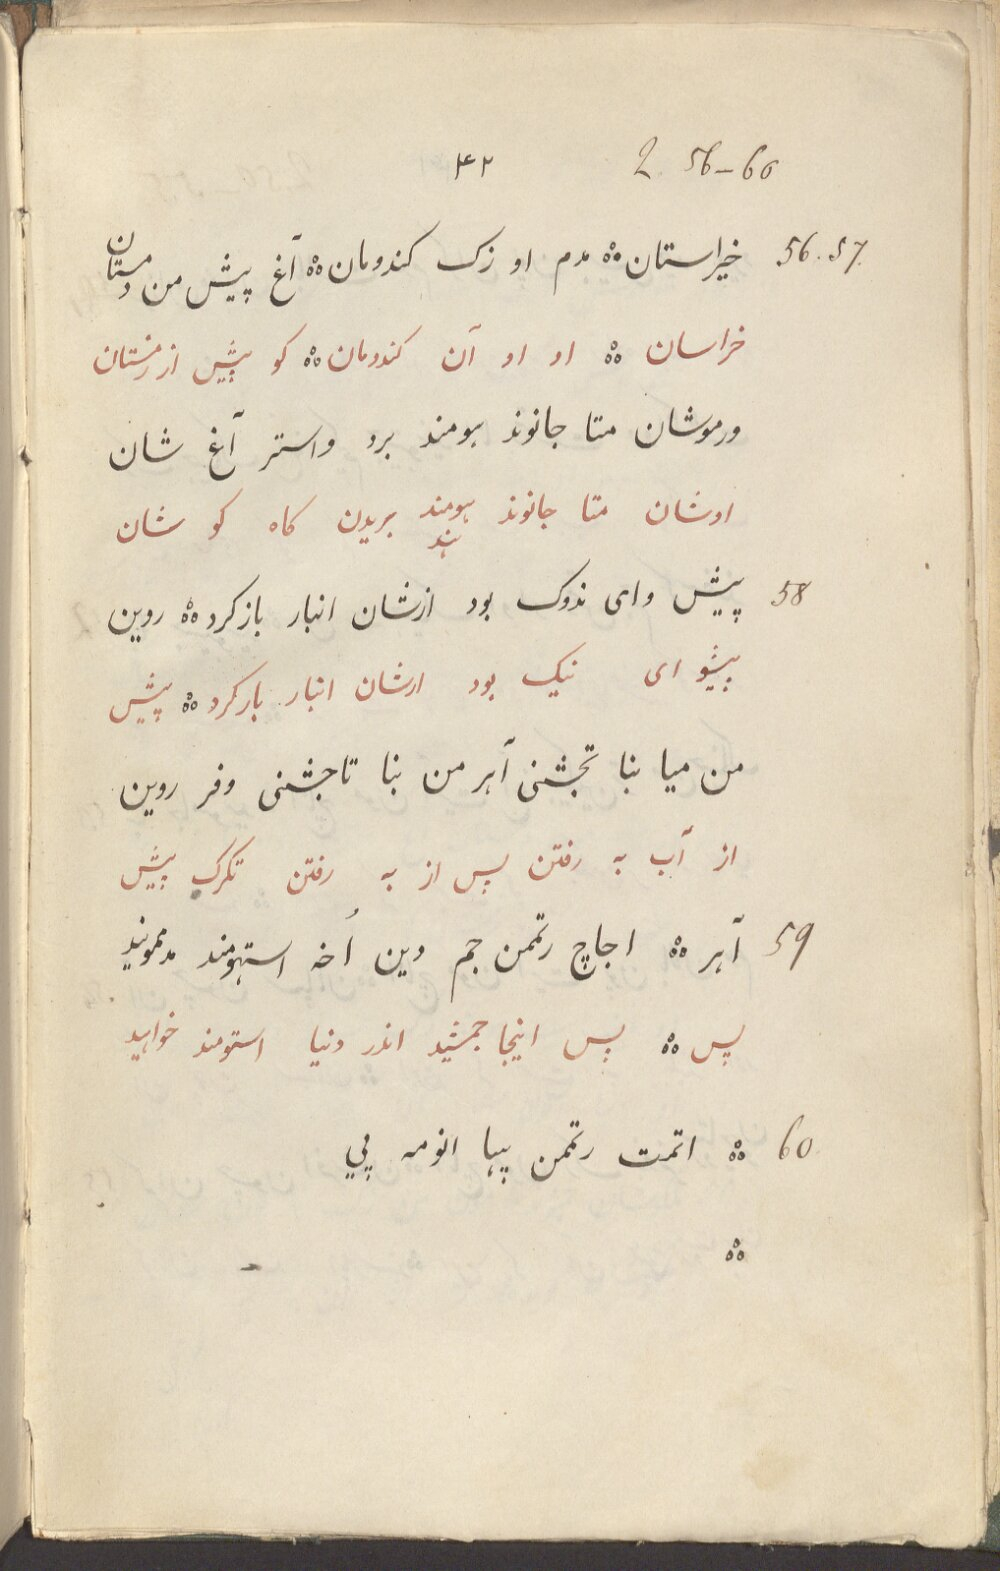 ۴۲ 2 56–60
56.57. خیراستان ஃ مدم او زک کندومان ஃ آغ پیش من دمستان
خراسان ஃ او او آن کندومان ஃ کو پیش از زمستان
ورموشان متا جانوند هومند برد واستر آغ شان
اوشان متا جانوند هومند هند بریدن کاه کو شان
58 پیش وای ندوک بود ازشان انبار بازکرد ஃ روین
پیشو ای نیک بود ارشان انبار بارکرد ஃ پیش
من میا بنا تجشنی آهر من بنا تاجشنی وفر روین
از آب به رفتن پس از به رفتن تکرک پیش
59 آهر ஃ اجاچ رتممن جم دین اُخه استهومند مدممونید
پس ஃ پس اینجا جمشید اندر دنیا استومند خواهید
60 ஃ اتمت رتممن پیها انومه پی
ஃ